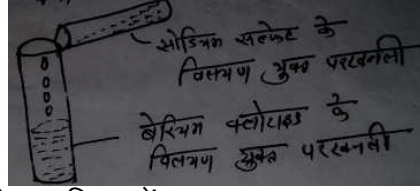 सोडियम सल्फेट के
विलयण युक्त परखनली
बेरियम क्लोराइड के
विलयण युक्त परखनली